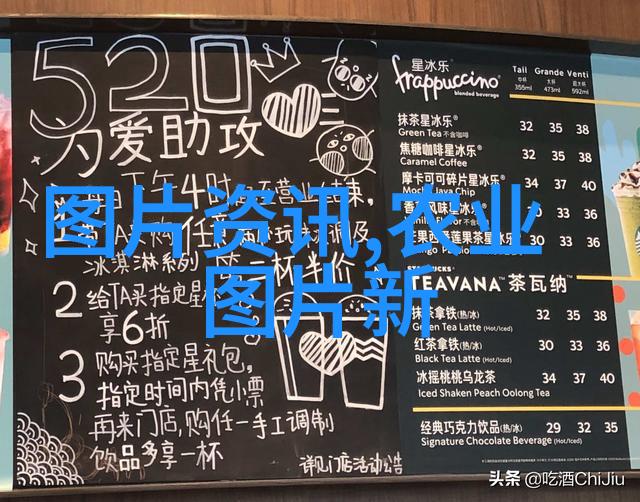 520
为爱助攻
下午4时
冰淇淋系列 第二杯半价
2 给TA买指定星
享6折
3 购买指定星礼包,
指定时间内凭小票
再来门店,购任一手工调制
饮品多享一杯
详见门店活动公告
星冰乐®
frappuccino®
blended beverage
Tall Grande Venti
中杯 大杯 超大杯
355ml 473ml 592ml
抹茶星冰乐® 32 35 38
Green Tea 不含咖啡
焦糖咖啡星冰乐® 32 35 38
Caramel Coffee
摩卡可可碎片星冰乐® 34 37 40
Mocha Java Chip
风味星冰乐® 30 33 36
芒果西番莲果茶星冰乐® 30 33 36
TEAVANA™ 茶瓦纳™
抹茶拿铁(热/冰) 32 35 38
Green Tea Latte (Hot/Iced)
红茶拿铁(热/冰) 30 33 36
Black Tea Latte (Hot/Iced)
冰摇桃桃乌龙茶 34 37 40
Iced Shaken Peach Oolong Tea
经典巧克力饮品(热/冰) 29 32 35
Signature Chocolate Beverage (Hot/Iced)
图片资讯,农业
图片新
头条 @吃酒ChiJiu